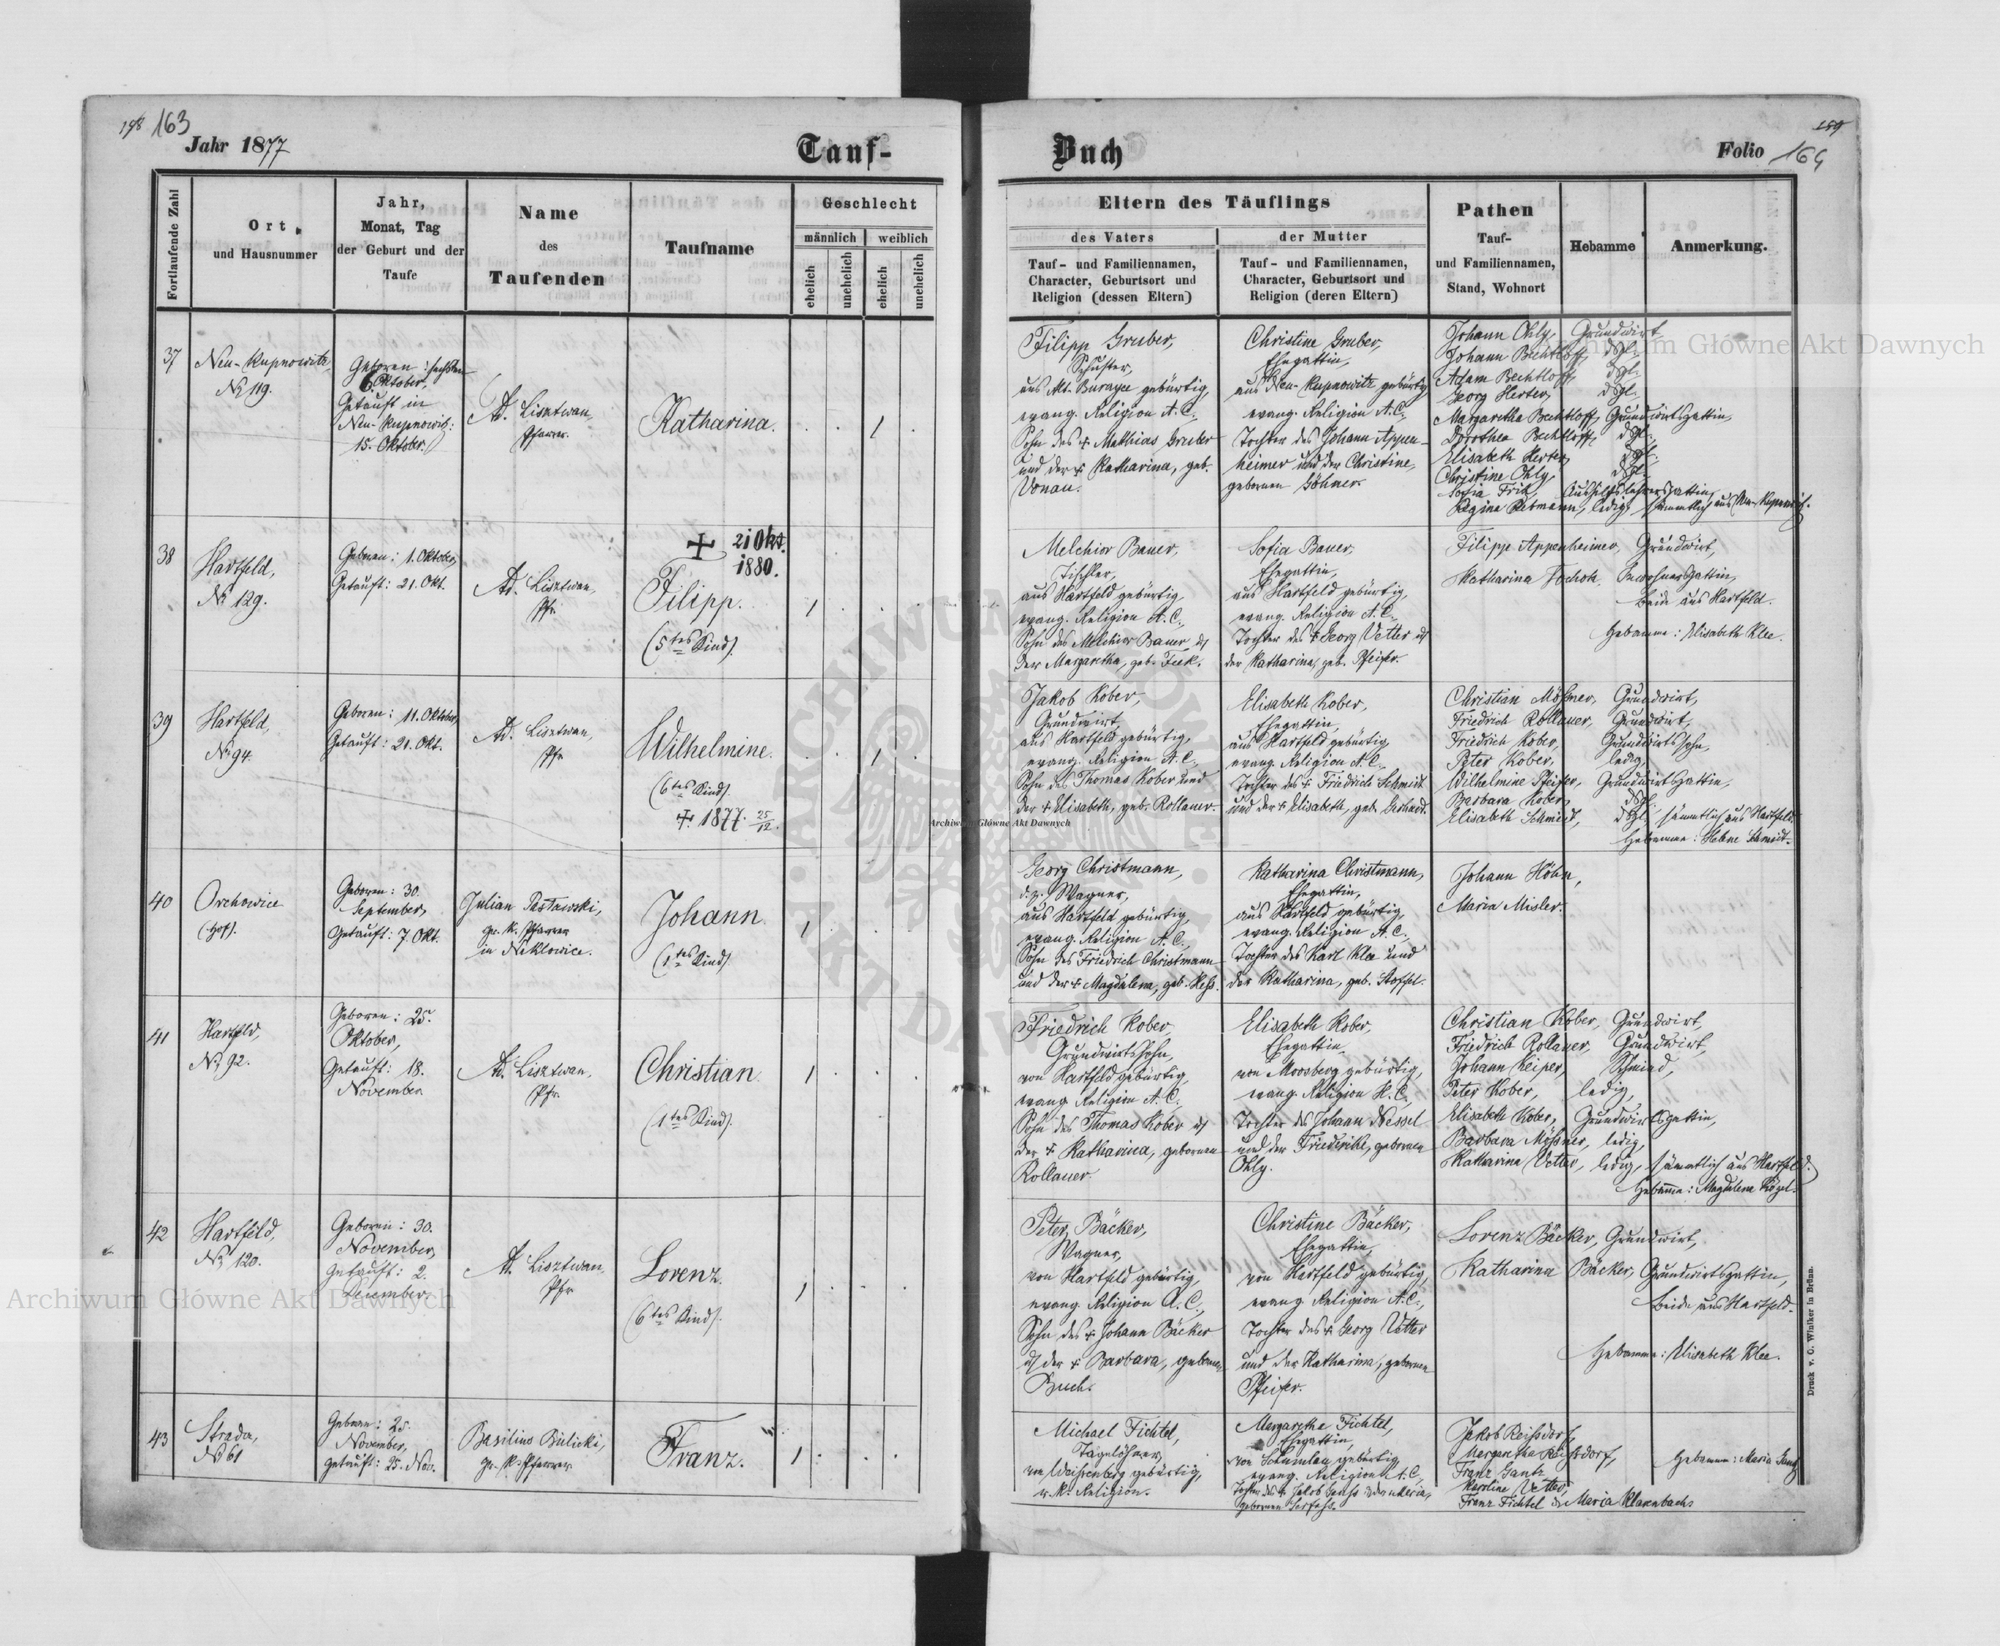 198 163
Jahr 1877
Tauf-
Fortlaufende Zahl
Ort
und Hausnummer
Jahr,
Monat, Tag
der Geburt und der
Taufe
Name
des
Taufenden
Taufname
Geschlecht
männlich weiblich
ehelich
unehelich
ehelich
unehelich
37
Neu-Kupnowitz,
No 119.
Geboren: sechsten
6 Oktober,
Getauft in
Neu-Kupnowitz:
15. Oktober.
Ad. Lisztwan,
Pfarrer.
Katharina.
1
38
Hartfeld,
No 129.
Geboren: 1. Oktober,
Getauft: 21. Okt.
Ad. Lisztwan,
Pfr.
+ 21 Okt.
1880.
Filipp.
(5tes Kind).
1
39
Hartfeld,
No 94.
Geboren: 11. Oktober,
Getauft: 21. Okt.
Ad. Lisztwan,
Pfr.
Wilhelmine.
(6tes Kind).
+ 1877 25/12.
1
40
Orchowice
(Hof).
Geboren: 30.
September,
Getauft: 7. Okt.
Julian Pastawski,
gr. k. Pfarrer
in Niklowice.
Johann.
(1tes Kind)
1
41
Hartfeld,
No 92.
Geboren: 25.
Oktober,
Getauft: 18.
November.
Ad. Lisztwan,
Pfr.
Christian.
(1tes Kind).
1
42
Hartfeld,
No 120.
Geboren: 30.
November,
Getauft: 2.
December.
Ad. Lisztwan,
Pfr.
Lorenz.
(6tes Kind).
1
43
Strada,
No 61
Geboren: 25.
November,
Getauft: 25. Nov.
Basilius Bilicki,
gr. k. Pfarrer
Franz.
1
Buch
Folio 164
159
Eltern des Täuflings
des Vaters
der Mutter
Tauf- und Familiennamen,
Character, Geburtsort und
Religion (dessen Eltern)
Tauf- und Familiennamen,
Character, Geburtsort und
Religion (deren Eltern)
Pathen
Tauf-
und Familiennamen,
Stand, Wohnort
Hebamme
Anmerkung.
Filipp Gruber,
Schuster,
aus Alt-Burayce gebürtig,
evang. Religion A. C.,
Sohn des + Mathias Gruber
und der + Katharina, geb.
Vonau.
Christine Gruber,
Ehegattin,
aus Neu-Kupnowitz gebürtig,
evang. Religion A. C.,
Tochter des Johann Appen-
heimer und der Christine,
gebornen Höhner.
Johann Ohly, Grundwirt,
Johann Bechtloff, dsgl.
Adam Bechtloff, dsgl.
Georg Herter, dsgl.
Margaretha Bechtloff, Grundwirtsgattin,
Dorothea Bechtloff, dsgl.
Elisabeth Herter, dsgl.
Christine Ohly, dsgl.
Sofia Frik, Aushilfslehrersgattin,
Regine Rebmann, ledig, sämmtlich aus Neu-Kupnowitz.
Melchior Bauer,
Tischler,
aus Hartfeld gebürtig,
evang. Religion A. C.,
Sohn des Melchior Bauer u
der Margaretha, geb. Feek.
Sofia Bauer,
Ehegattin,
aus Hartfeld gebürtig,
evang. Religion A. C.,
Tochter des + Georg Vetter u
der Katharina, geb. Pfeifer.
Filipp Appenheimer, Grundwirt,
Katharina Inwohnersgattin,
Beide aus Hartfeld.
Hebamme: Elisabeth Klee.
Jakob Kober,
Grundwirt,
aus Hartfeld gebürtig,
evang. Religion A. C.,
Sohn des Thomas Kober und
der + Elisabeth, geb. Rollauer.
Elisabeth Kober,
Ehegattin,
aus Hartfeld gebürtig,
evang. Religion A. C.,
Tochter des + Friedrich Schmidt
und der + Elisabeth, geb. Gerhardt.
Christian Mößner, Grundwirt,
Friedrich Rollauer, Grundwirt,
Friedrich Kober, Grundwirtssohn,
Peter Kober, ledig,
Wilhelmine Pfeifer, Grundwirtsgattin,
Barbara Kober, dsgl.
Elisabeth Schmidt, dsgl. sämmtlich aus Hartfeld.
Hebamme: Helene Schmidt.
Georg Christmann,
d. z. Wagner,
aus Hartfeld gebürtig,
evang. Religion A. C.,
Sohn des Friedrich Christmann
und der + Magdalena, geb. Heß.
Katharina Christmann,
Ehegattin,
aus Hartfeld gebürtig,
evang. Religion A. C.,
Tochter des Karl Klee und
der Katharina, geb. Stoffel.
Johann Höhn,
Maria Misler.
Friedrich Kober,
Grundwirtssohn,
von Hartfeld gebürtig,
evang. Religion A. C.,
Sohn des Thomas Kober u
der + Katharina, gebornen
Rollauer.
Elisabeth Kober,
Ehegattin,
von Moosberg gebürtig,
evang. Religion H. C.,
Tochter des Johann Nessel
und der Friederike, gebornen
Ohly.
Christian Kober, Grundwirt,
Friedrich Rollauer, Grundwirt,
Johann Keiper, Schmied,
Peter Kober, ledig,
Elisabeth Kober, Grundwirtsgattin,
Barbara Mößner, ledig,
Katharina Vetter, ledig, sämmtlich aus Hartfeld.
Hebamme: Magdalena Kögel.
Peter Bäcker,
Wagner,
von Hartfeld gebürtig,
evang. Religion A. C.,
Sohn des + Johann Bäcker
u der + Barbara, gebornen
Buch.
Christine Bäcker,
Ehegattin,
von Hartfeld gebürtig,
evang. Religion A. C.,
Tochter des + Georg Vetter
und der Katharina, gebornen
Pfeifer.
Lorenz Bäcker, Grundwirt,
Katharina Bäcker, Grundwirtsgattin,
Beide aus Hartfeld.
Hebamme: Elisabeth Klee.
Michael Fichtel,
Tagelöhner,
von Weissenberg gebürtig,
r. k. Religion.
Margaretha Fichtel,
Ehegattin,
von Schumlau gebürtig,
evang. Religion A. C.,
Jakob Reißdorf,
Margaretha Reißdorf,
Franz Gantz
Karoline Vetter,
Franz Fichtel & Maria Klakenbach
Hebamme: Maria
Druck v. C. Winiker in Brünn.
Archiwum Główne Akt Dawnych
Archiwum Główne Akt Dawnych
Archiwum Główne Akt Dawnych